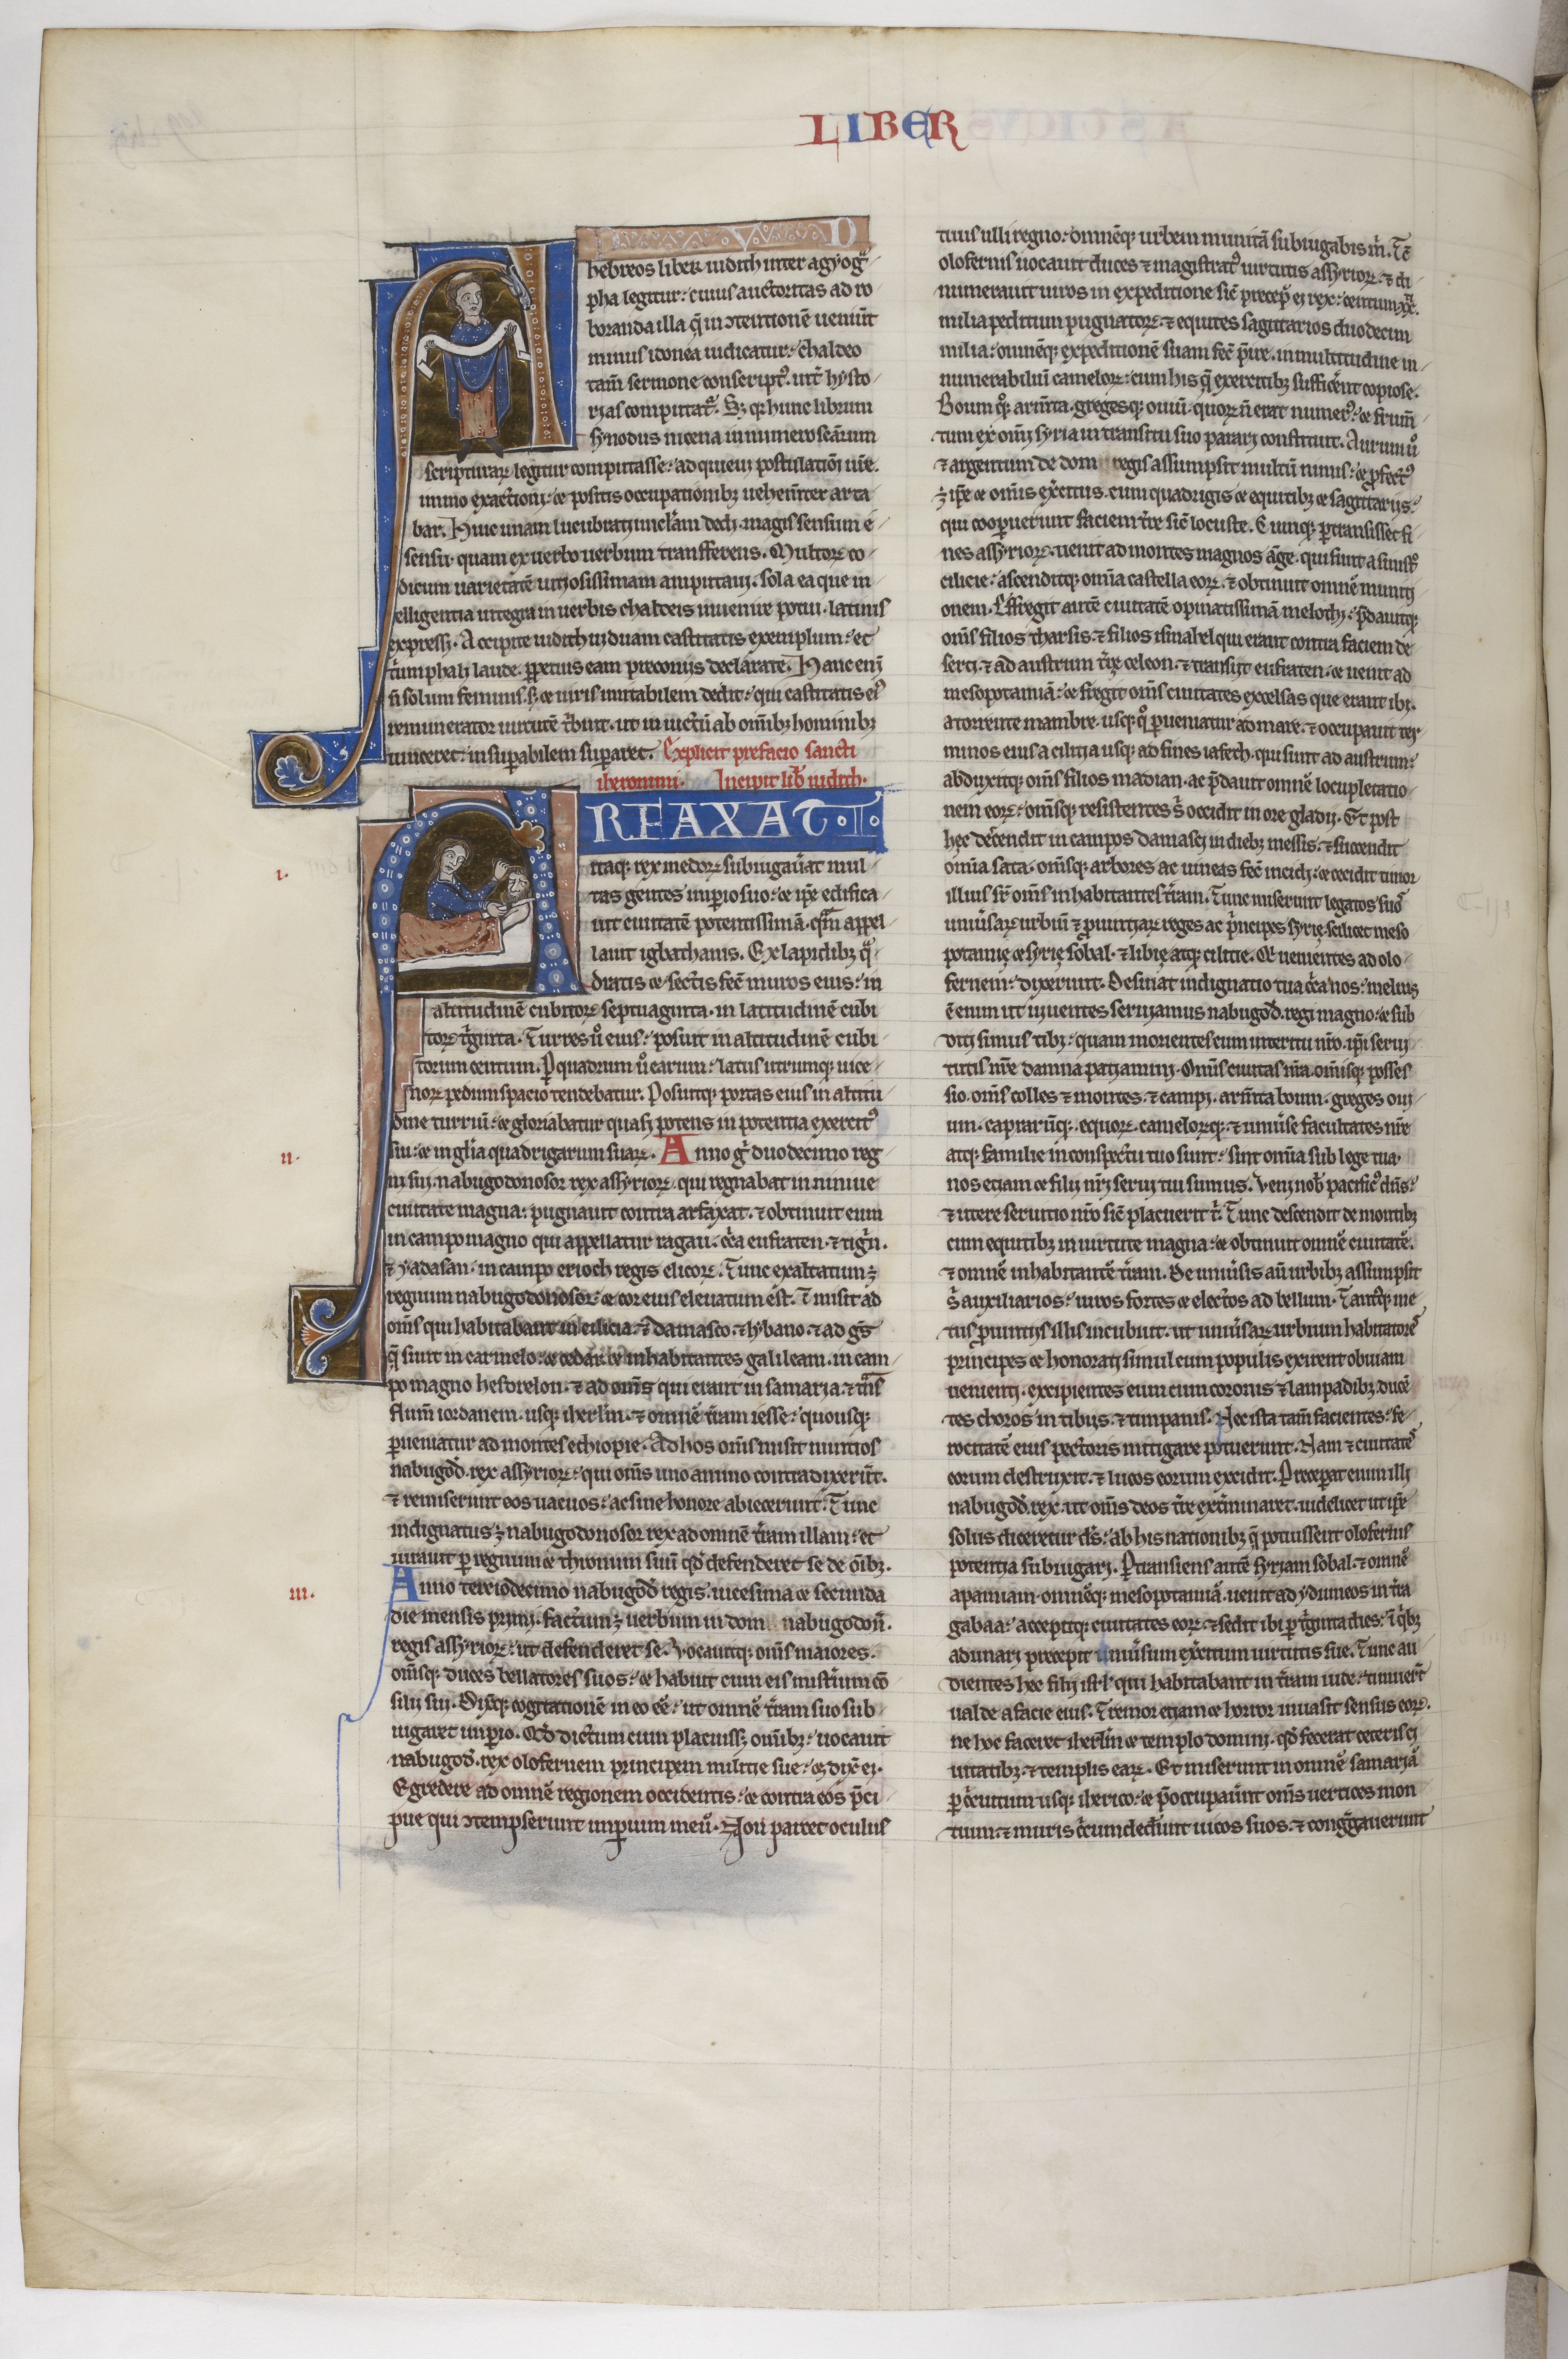 LIBER
APVD
hebreos liber iudith inter agyogͣ
pha legitur: cuius auctoritas ad ro
boranda illa q̄ in ↄtentionē ueniūt
minus idonea iudicatur: chaldeo
tam̄ sermone conscriptꝰ. int̄ hysto
rias computatͣ. Sꝫ qꝛ hunc librum
synodus nicena in numero scārum
scripturaꝝ legitur computasse: adquieui postulatiōi ur̄e.
immo exactioni: ⁊ positis occupationibꝫ uehem̄ter arta
bar. Huic unam lucubratiunclām dedi. magis sensum e
sensu quam ex uerbo uerbum transfferens. Multoꝝ co
dicum uarietatē uitiosissimam amputaui. sola ea que in
elligentia integra in uerbis chaldeis inuenire potui. latinis
expressi. Accipite iudith uiduam castitatis exemplum: et
t̄umphali laude. ꝑpetuis eam preconiis declarate. Hanc eni
n̄ solum feminis. sꝫ ⁊ uiris imitabilem dedit: qui castitatis eiꝰ
remunerator uirtutē t̄buit. ut inuictū ab om̄ibꝫ hominibꝫ
uinceret: insuꝑabilem suꝑaret. Explicit prefacio sancti
iheronimi. Incipit lib̄ iudith.
ARFAXAT .II.
i.
itaqꝫ rex medoꝝ subiugau̇at mul
tas gentes imꝑio suo: ⁊ ip̄e edifica
uit ciuitatē potentissimā. qͣm appel
lauit igbathanis. Ex lapidibꝫ qͣ
dratis ⁊ sectis fec̄ muros eius: in
altitudinē cubitoꝝ septuaginta. in latitudinē cubi
toꝝ tͥginta. Turres u̇o eius: posuit in altitudinē cubi
torum centum. Ꝑ quadrum u̇o earum: latus utrumqꝫ uice
noꝝ pedum spacio tendebatur. Posuitqꝫ portas eius in altitu
dine turriū: ⁊ gloriabatur quasi potens in potentia exercitꝰ
ii.
sui: ⁊ in glīa quadrigarum suaꝝ. Anno gͥ duodecimo reg
ni sui. nabugodonosor rex assyrioꝝ. qui regnabat in niniue
ciuitate magna: pugnauit contra arfaxat. ⁊ obtinuit eum
in campo magno qui appellatur ragau. cͥca eufraten. ⁊ tigͥn.
⁊ yadasan. in campo erioch regis elicoꝝ. Tunc exaltatum ꝫ
regnum nabugodonosor: ⁊ cor eius eleuatum est. ⁊ misit ad
om̄s qui habitabant in cilicia. ⁊ damasco. ⁊ lybano. ⁊ ad gͤs
q̄ sunt in carmelo: ⁊ cedar. ⁊ inhabitantes galileam. in cam
po magno hesdrelon. ⁊ ad om̄s qui erant in samaria. ⁊ tͣs
flum̄ iordanem. usqꝫ iherlm̄. ⁊ omnē t̄ram iesse: quousqꝫ
ꝑueniatur ad montes echiopie. Ad hos om̄s misit nuntios
nabugod̄. rex assyrioꝝ: qui om̄s uno animo contradixerūt.
⁊ remiserunt eos uacuos: ac sine honore abiecerunt. Tunc
indignatus ꝫ nabugodonosor rex ad omnē t̄ram illam: et
iurauit ꝑ regnum ⁊ thronum suū qd̄ defenderet se de oībꝫ.
iii.
Anno terciodecimo nabugod̄ regis. uicesima ⁊ secunda
die mensis primi. factum ꝫ uerbum in dom nabugodon̄.
regis assyrioꝝ: ut defenderet se. Vocauitqꝫ om̄s maiores.
om̄sqꝫ duces bellatores suos: ⁊ habuit cum eis mist̄ium cō
silii sui. Dixitqꝫ cogitationē in eo eē: ut omnē t̄ram suo sub
iugaret imꝑio. Qd̄ dictum cum placuissꝫ om̄ibꝫ: uocauit
nabugod̄. rex olofernem principem militie sue: ⁊ dix̄ ei.
Egredere ad omnē regionem occidentis: ⁊ contra eos p̄ci
pue qui ↄtempserunt imꝑium meū. Non parcet oculus
tuus ulli regno: omnēqꝫ urbem munitā subiugabis m̄. Tc̄
olofernis uocauit duces ⁊ magistratꝰ uirtutis assyrioꝝ. ⁊ di
numerauit uiros in expeditione sic̄ precep̄ ei rex: centum xx.
milia peditum pugnatoꝝ. ⁊ equites sagittarios duodecim
milia: omnēqꝫ expeditionē suam fec̄ p̄ire. in multitudine in
numerabiliū cameloꝝ: cum his q̄ exercitibꝫ suffic̄ent copiose.
Boum qͦꝫ arm̄ta. gregesqꝫ ouiū. quoꝝ n̄ erat numerꝰ: ⁊ frum̄
tum ex om̄i syria in transitu suo parari constituit. Aurum u̇o
⁊ argentum de dom regis assumpsit multū nimis: ⁊ ꝓfectꝰ
ꝫ ip̄e ⁊ om̄is ex̄citus. cum quadrigis ⁊ equitibꝫ ⁊ sagittariis:
qui cooꝑuerunt faciem t̄re sic̄ locuste. Cunqꝫ ꝑtransisset fi
nes assyrioꝝ. uenit ad montes magnos āge. qui sunt a sinistͥs
cilicie: ascenditqꝫ omīa castella eoꝝ. ⁊ obtinuit omnē muniti
onem. Effregit autē ciuitatē opinatissimā melothi: p̄dauitqꝫ
om̄s filios tharsis. ⁊ filios ismahel qui erant contra faciem de
serti. ⁊ ad austrum t̄re celeon. ⁊ transiit eufraten. ⁊ uenit ad
mesopotamiā: ⁊ fregit om̄s ciuitates excelsas que erant ibi.
a torrente mambre. usqꝫ qͦ ꝑueniatur ad mare. ⁊ occupauit ter
minos eius a cilitia usqꝫ ad fines iafeth. qui sunt ad austrum:
abduxitqꝫ om̄s filios madian. ac p̄dauit omnē locupletatio
nem eoꝝ: om̄sqꝫ resistentes s̄ occidit in ore gladii. Et post
hec dec̄endit in campos damasci in diebꝫ messis. ⁊ succendit
omīa sata. om̄sqꝫ arbores ac uineas fec̄ incidi: ⁊ cecidit timor
illius sr̄ om̄s inhabitantes t̄ram. Tunc miserunt legatos suos
uniu̇saꝝ urbiū ⁊ ꝓuintiaꝝ reges ac pͥncipes syrie. scilicet meso
potamie ⁊ syrie sobal. ⁊ libie atqꝫ cilicie. Qͥ uenientes ad olo
fernem: dixerunt. Desinat indignatio tua cͥca nos: melius
ē enim ut uiuentes seruiamus nabugod̄. regi magno: ⁊ sub
diti simus tibi: quam morientes cum interitu nr̄o. ip̄i serui
tutis nr̄e damna patiamini. Omīs ciuitas nr̄a. om̄isqꝫ posses
sio. om̄s colles ⁊ montes. ⁊ campi. arm̄ta boum. greges oui
um. caprarūqꝫ. equoꝝ. cameloꝝqꝫ. ⁊ uniu̇se facultates nr̄e
atqꝫ familie in conspectu tuo sunt: sint omīa sub lege tua.
nos etiam ⁊ filii nr̄i serui tui sumus. Veni nob̄ pacificꝰ dn̄s:
⁊ utere seruitio nr̄o sic̄ placuerit t̄. Tunc descendit de montibꝫ
cum equitibꝫ in uirtute magna: ⁊ obtinuit omnē ciuitatē.
⁊ omnē inhabitantē t̄ram. De uniu̇sis aū urbibꝫ assumpsit
s̄ auxiliarios: uiros fortes ⁊ electos ad bellum. Tantꝰqꝫ me
tus ꝓuintiis illis incubuit. ut uniu̇saꝝ urbium habitatores
principes ⁊ honorati simul cum populis exirent obuiam
uenienti. excipientes eum cum coronis ⁊ lampadibꝫ. ducē
tes choros in tibiis. ⁊ timpanis. Nec ista tam̄ facientes: fe
rocitatē eius pectoris mitigare potuerunt. Nam ⁊ ciuitates
eorum destruxit. ⁊ lucos eorum excidit. Preceperat enim illi
nabugod̄. rex. ut om̄s deos t̄re ext̄minaret. uidelicet ut ip̄e
solus diceretur ds̄: ab his nationibꝫ q̄ potuissent olofernis
potentia subiugari. Ꝑtransiens autē syriam sobal. ⁊ omnē
apamiam. omnēqꝫ mesopotamiā. uenit ad ydumeos in t̄ra
gabaa: accepitqꝫ ciuitates eoꝝ. ⁊ sedit ibi ꝑ tͥginta dies: ī qͥbꝫ
adunari precepit uniu̇sum ex̄citum uirtutis sue. Tunc au
dientes hec filii isrl̄ qui habitabant in t̄ram iude: timuer̄t
ualde a facie eius. Tremor etiam ⁊ horror inuasit sensus eoꝝ.
ne hoc faceret iherlm̄ ⁊ templo domini. qd̄ fecerat ceteris ci
uitatibꝫ. ⁊ templis eaꝝ. Et miserunt in omnē samariā
ꝑ cͥcuitum usqꝫ iherico: ⁊ p̄occupaūnt om̄s uertices mon
tium: ⁊ muris cͥcumdeder̄unt uicos suos. ⁊ conggͣauerunt